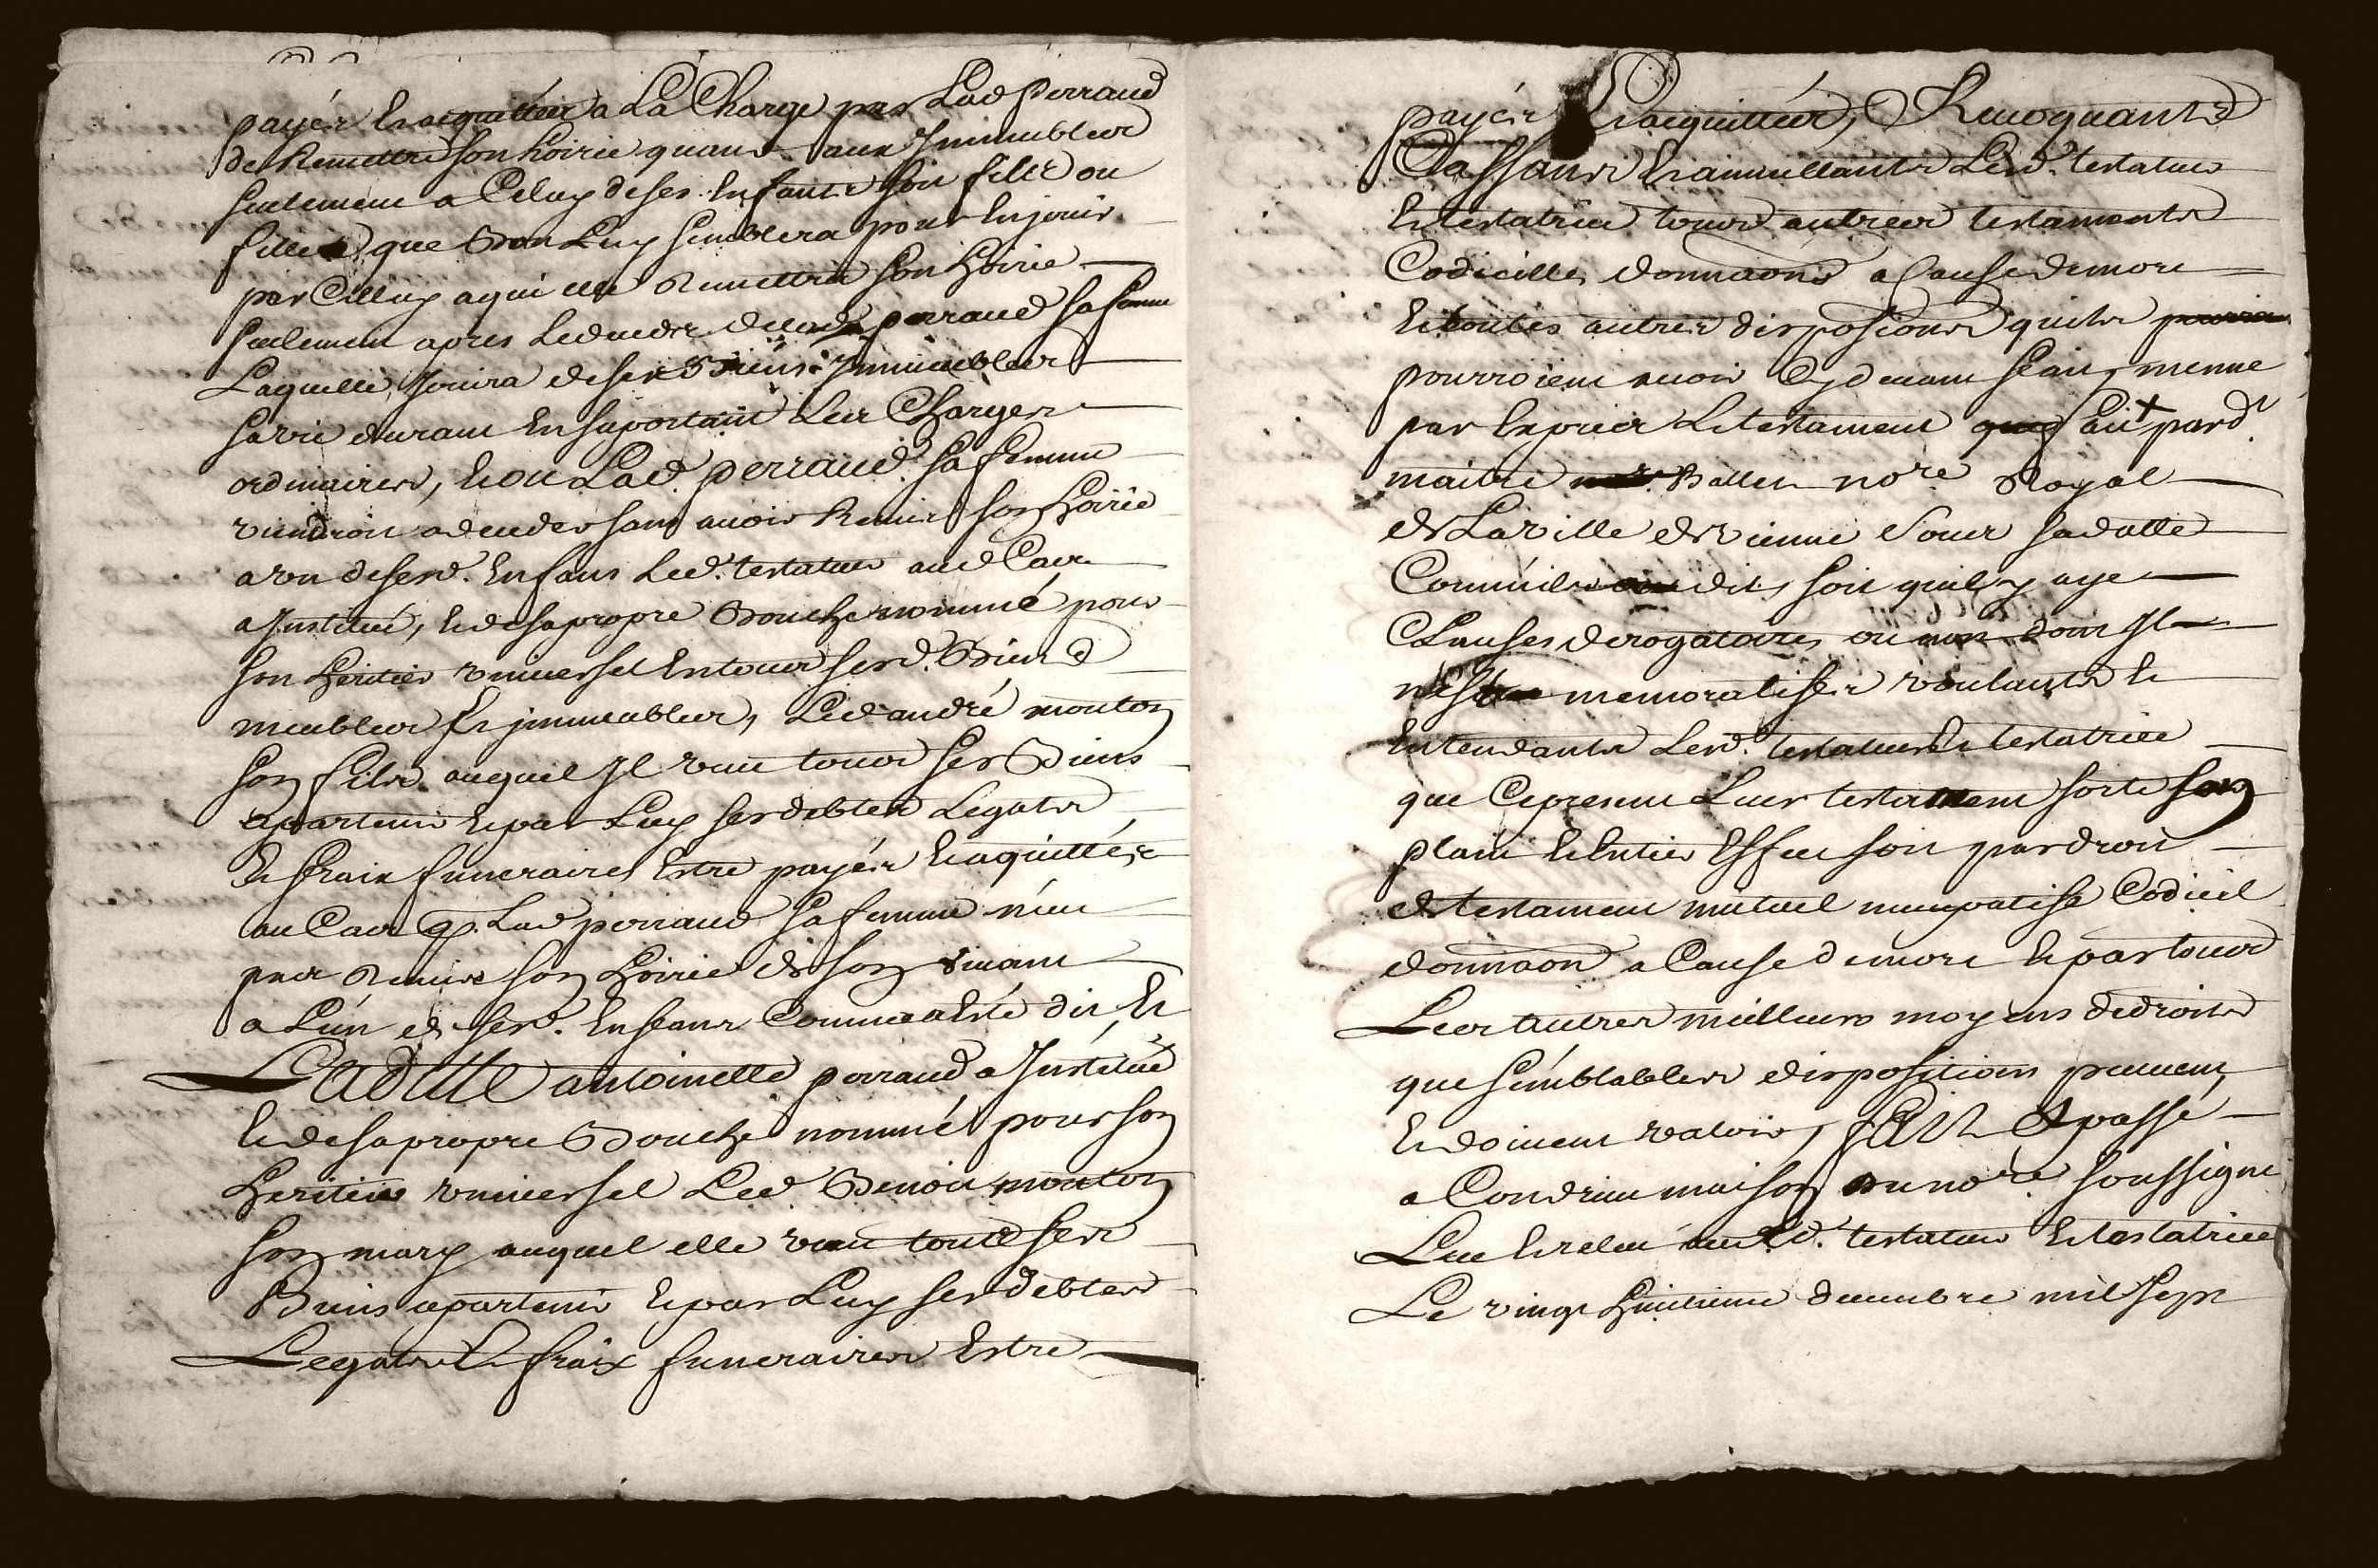 payés et acquittés a La Charge par Lad perraud
de Remettre son hoirie quant aux Immeubles
seulement a Celuy de ses Enfants soit fils ou
fille que Bon Luy semblera pour En jouir
par Celluy a qui elle Remettra son hoirie
seulement apres Le deceds de lad perraud sa femme
Laquelle Jouira de ses Biens Immeubles
sa vie durant En suportant Les Charges
ordinaires, Et ou Lad. perraud sa femme
viendroit a deceder sans avoir Remis son hoirie
a un de sesd. Enfans Led. testateur aud Cas
a Institué, et de sa propre Bouche nommé pour
son heritier universel En tous sesd. Biens
meubles Et jmmeubles, Led andré mouton
son fils auquel Il veut tous ses Biens
apartenir et par Luy ses debtes Legats
Et fraix funeraires Estre payés Et aquittés
au Cas q. Lad perraud sa femme n'eut
pas Remis son hoirie de son vivant
a L'un de sesd. Enfans Comme a esté dit Et
Laditte antoinette perraud a Institué
Et de sa propre Bouche nommé pour son
Heritier universel Led Benoit mouton
son mary auquel elle veut tous ses
Biens apartenir Et par Luy ses debtes
Legats Et fraix funeraires Estre
payés Et acquittés, Revoquants
Cassants Et annullants Lesd. testateur
Et testatrice tous autres testaments
Codicilles donnaons a Cause de mort
Et toutes autres disposions quils
pourroient avoir Cydevant fait, mesme
par Exprés Le testament fait par d.
maitre Ballet nore Royal
de La ville de vienne sous sa datte
Comm'ils dits soit quil y aye
Clauses derogatoires ou non dont Il
n'est memoratifs voulants et
Entendants Lesd. testateur Et testatrice
que Ce present Leur testament sorte son
plain Et Entier Effet soit par droit
de testament mutuel nuncupatif Codicil
donnaon a Cause de mort Et par tous
Les autres meilleurs moyens de droits
que semblables dispositions peuvent
Et doivent valoir, fait Et passé
a Condrieu maison du nore soussigné
Leu Et releu aud. testateur Et testatrice
Le vingt huitieme decembre mil sept